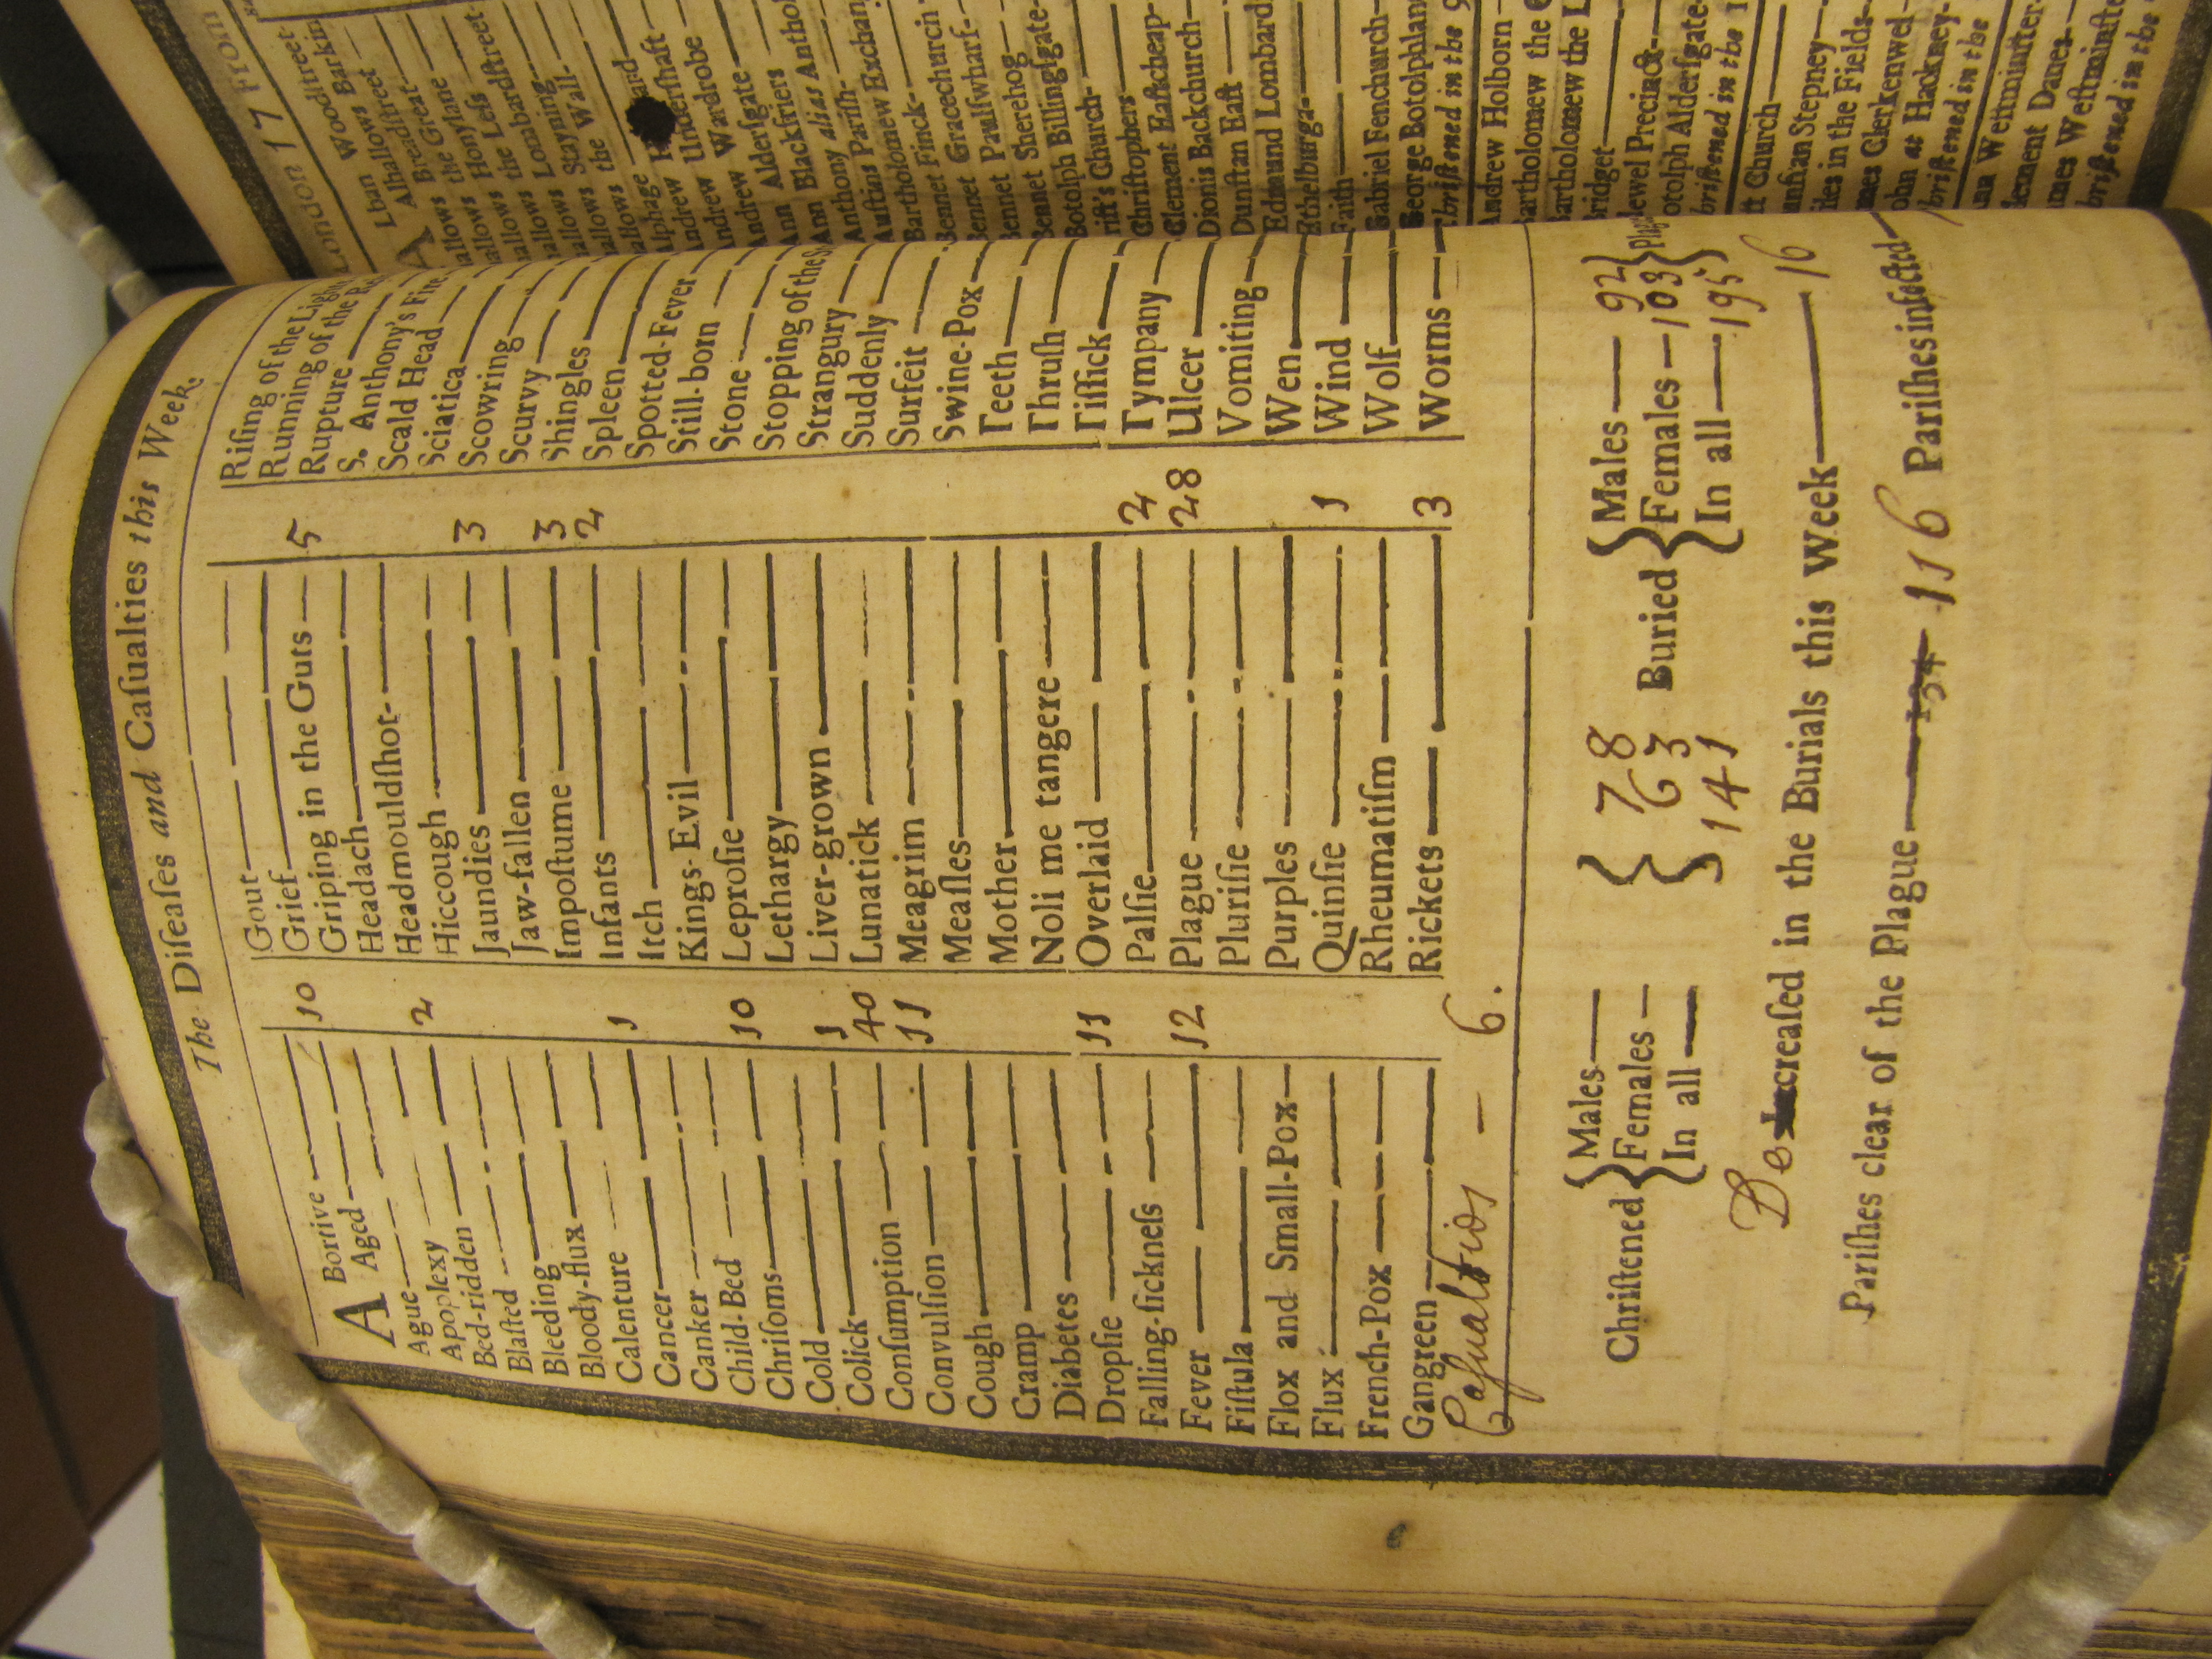 The Diſeaſes and Caſualties this Week.
A Bortive
Aged 10
Ague
Apoplexy 2
Bed-ridden
Blaſted
Bleeding
Bloody-flux
Calenture
Cancer 1
Canker
Child-Bed
Chriſoms 10
Cold
Colick 1
Conſumption 40
Convulſion 11
Cough
Cramp
Diabetes
Dropſie 11
Falling-ſickneſs
Fever 12
Fiſtula
Flox and Small-Pox
Flux
French-Pox
Gangreen
Caſualties — 6.
Gout
Grief
Griping in the Guts 5
Headach
Headmouldſhot
Hiccough
Jaundies 3
Jaw-fallen
Impoſtume 3
Infants 2
Itch
Kings-Evil
Leproſie
Lethargy
Liver-grown
Lunatick
Meagrim
Meaſles
Mother
Noli me tangere
Overlaid
Palſie 2
Plague 28
Pluriſie
Purples
Quinſie 1
Rheumatiſm
Rickets 3
Riſing of the
Running of the
Rupture
S. Anthony's Fire
Scald Head
Sciatica
Scowring
Scurvy
Shingles
Spleen
Spotted-Fever
Still-born
Stone
Stopping of the
Strangury
Suddenly
Surfeit
Swine-Pox
Teeth
Thruſh
Tiſſick
Tympany
Ulcer
Vomiting
Wen
Wind
Wolf
Worms
Chriſtened { Males 78
Females 63
In all 141
Buried { Males 92
Females 103
In all 195
Decreaſed in the Burials this Week 16
Pariſhes clear of the Plague 116 Pariſhes infected
London 17 From
Alban Woodſtreet
Alhallows Barkin
Alhallows Breadſtreet
Alhallows the Great
Alhallows Honylane
Alhallows the Leſs
Alhallows Lombardſtreet
Alhallows Stayning
Alhallows the Wall
Alphage
Andrew Underſhaft
Andrew Wardrobe
Ann Alderſgate
Ann Blackfriers
Anthony alias Antho
Auſtins Pariſh
Bartholomew Exchan
Bennet Finck
Bennet Gracechurch
Bennet Paulſwharf
Bennet Sherehog
Botolph Billingſgate
Church
Chriſtophers
Clement Eaſtcheap
Dionis Backchurch
Dunſtan Eaſt
Edmund Lombard
Ethelburga
Faith
Gabriel Fenchurch
George Botolphlane
briſtened in the 9
Andrew Holborn
Bartholomew the
Bartholomew the L
ridget
ewel Precinct
otolph Alderſgate
briſtened in the 1
ſt Church
unſtan Stepney
iles in the Fields
mes Clerkenwel
ohn at Hackney
briſtened in the
nn Weſtminſter
lement Danes
mes Weſtminſte
briſtened in the